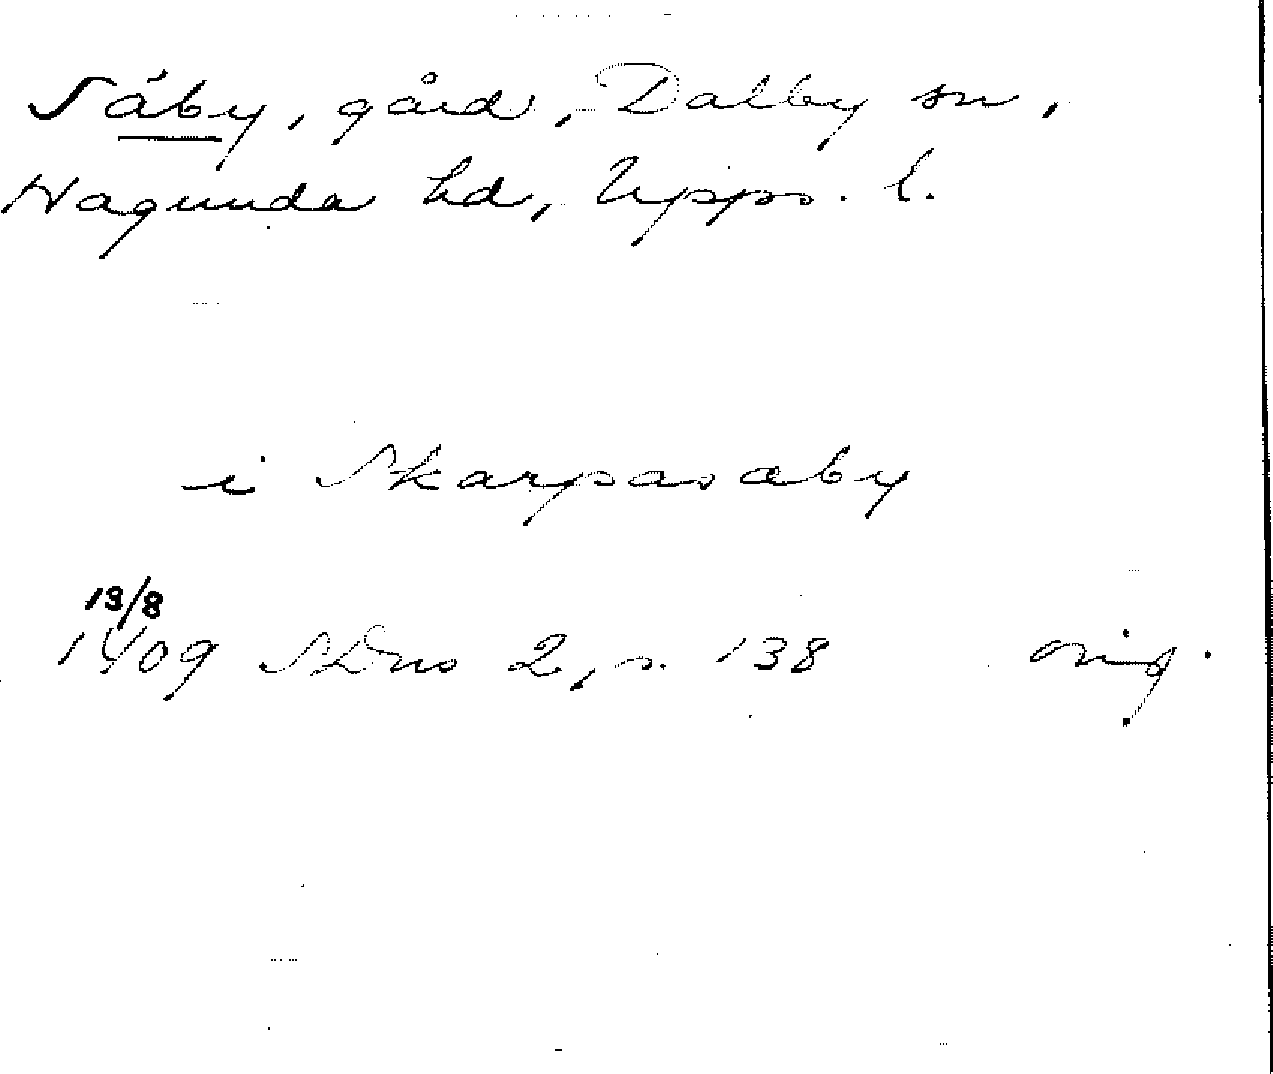 Säby, gård, Dalby sn,
Hagunda hd, Upps. l.
i Skarpasæby
19/8
1409 SDns 2, s. 138 orig.